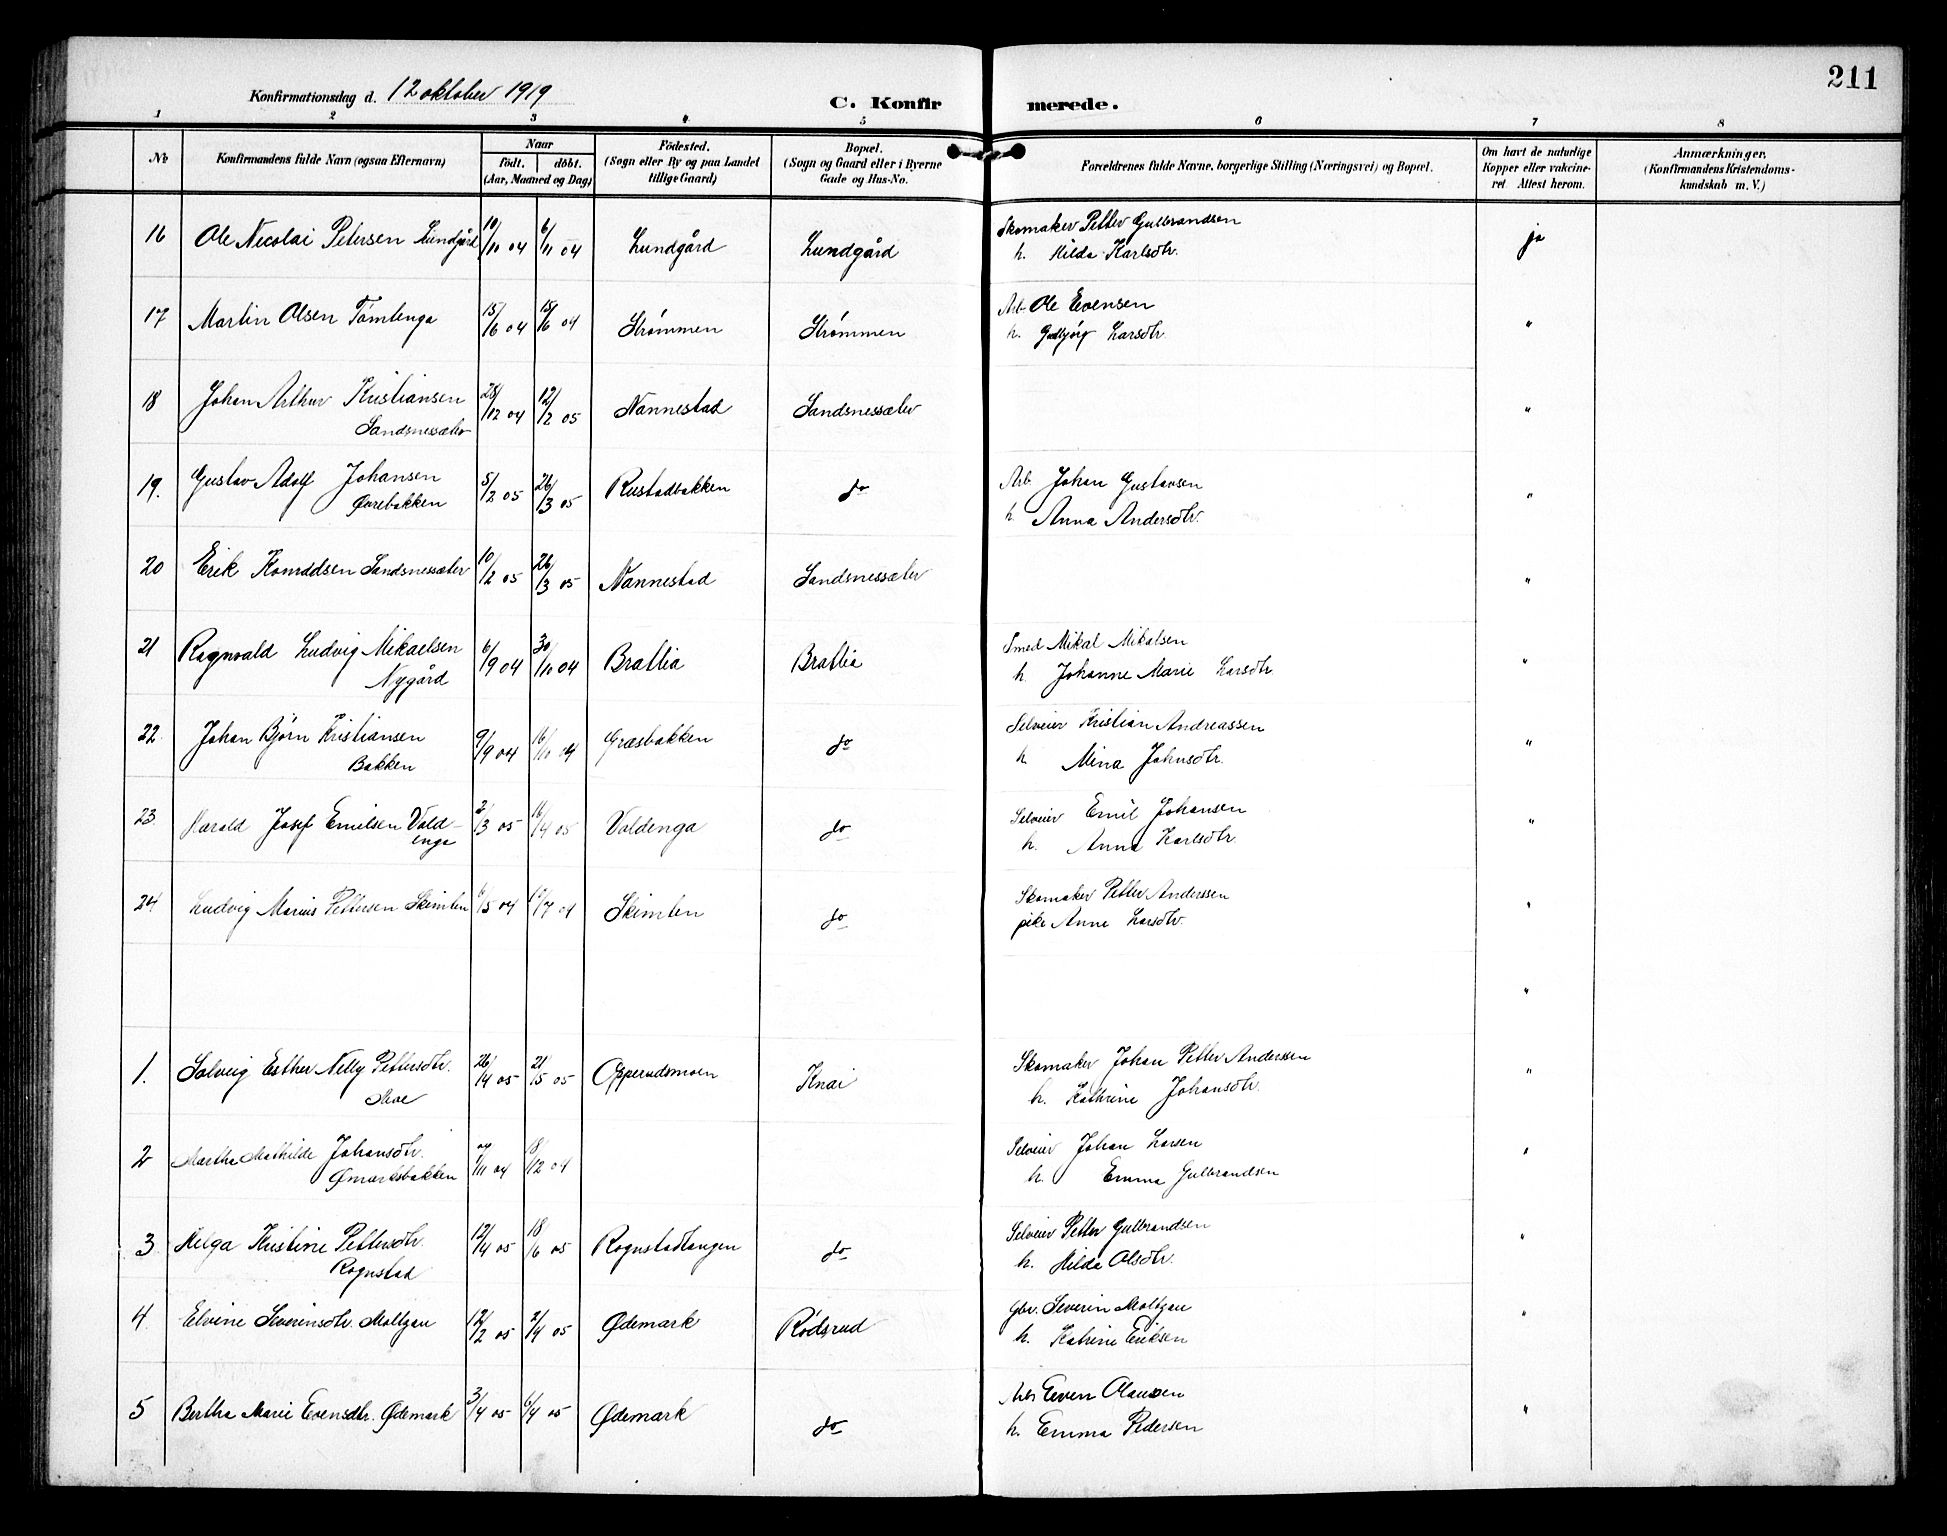 211
Konfirmationsdag d. 12 oktober 1919
C. Konfir merede.
1 2 3 4 5 6 7 8
No Konfirmandens fulde Navn (ogsaa Efternavn) Naar födt. döbt. (Aar, Maaned og Dag) Födested. (Sogn eller By og paa Landet tillige Gaard) Bopæl. (Sogn og Gaard eller i Byerne Gade og Hus-No. Forældrenes fulde Navne, borgerlige Stilling (Næringsvei) og Bopæl. Om havt de naturlige Kopper eller vakcineret. Attest herom. Anmærkninger. (Konfirmandens Kristendomskundskab m. V.)
16 Ole Nicolai Petersen Lundgård 10/10 04 6/11 04 Lundgård Lundgård Skomaker Petter Gulbrandsen ja
h. Hilda Karlsdtr.
17 Martin Olsen Tomtenga 15/6 04 Strømmen Strømmen Arb. Ole Evensen "
h. Larsdtr.
18 Johan Arthur Kristiansen 28/12 04 12/2 05 Nannestad Sandsnessæter "
Sandsnessæter
19. Gustav Adolf Johansen 5/2 05 26/3 05 Rustadbakken do Arb. Johan Gustavsen "
Øvrebakken h. Anna Andersdtr.
20 Erik Konradsen Sandsnessæter 10/2 05 26/3 05 Nannestad Sandsnessæter "
21 Ragnvald Ludvig Mikaelsen 6/9 04 30/10 04 Bratlia Bratlia Smed Mikal Mikalsen "
Nygård h. Johanne Marie Larsdtr.
22. Johan Bjørn Kristiansen 9/9 04 16/10 04 Græsbakken do Selveier Kristian Andreassen "
Bakken h. Mina Johnsdtr.
23. Harald Josef Emilsen Vold- 2/3 05 16/4 05 Voldenga do Selveier Emil Johansen "
enga h. Anna Karlsdtr.
24. Ludvig Marius Pettersen Skimten 6/5 04 Skimten do Skomaker Petter Anderssen "
pike Anne Larsdtr.
"
1. Solveig Esther Nelly Pettersdtr. 26/4 05 21/5 05 Opperudsmoen Knai Skomaker Johan Petter Anderssen "
Moe h. Kathrine Johansdtr.
2 Martha Mathilde Johansdtr. 18/12 04 Selveier Johan Larsen "
Ømarksbakken h. Emma Gulbrandsen
3 Helga Kristine Pettersdtr. 12/4 05 18/6 05 Rognstadtangen do Selveier Petter Gulbrandsen "
Rognstad h. Hilda Olsdtr.
4. Elvine Severinsdtr. Moltzau 12/2 05 2/4 05 Ødemark Rødsrud Gbr. Severin Moltzau "
h. Katrine Eriksen
5 Bertha Marie Evensdtr. Ødemark 3/4 05 Ødemark do Arb Even Olausen "
h. Emma Pedersen